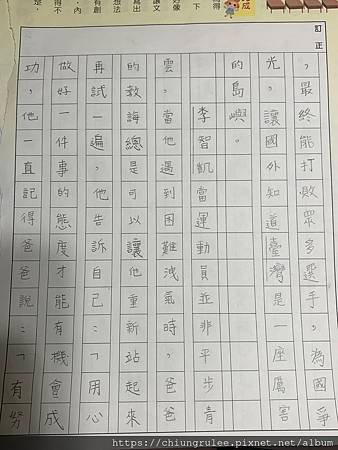 成
為得
下
好像
讓文
寫出
想法
有創
，內
得不
是，
訂正
，最終能打敗眾多選手，為國爭
光。讓國外知道臺灣是一座厲害
的島嶼。
李智凱當運動員並非平步青
雲，當他遇到困難洩氣時，爸爸
的教誨總是可以讓他重新站起來
再試一遍，他告訴自己：「用心
做好一件事的態度才能有機會成
功，他一直記得爸爸說：「有努
https://chiungrulee.pixnet.net/album